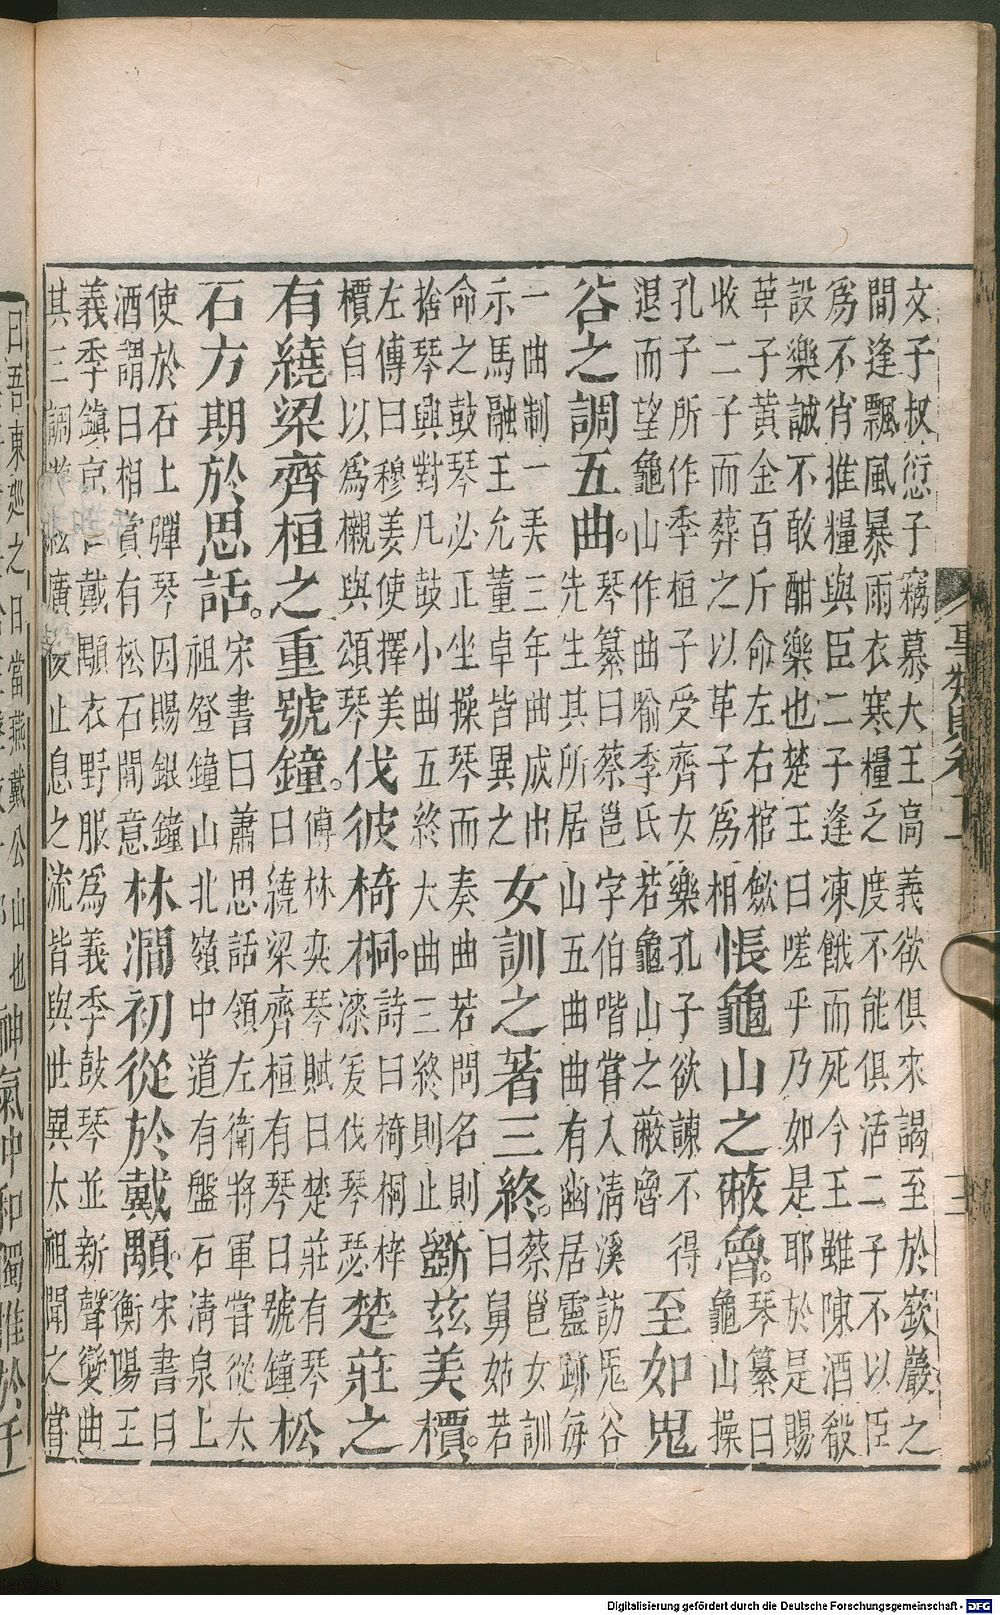 文子叔愆子竊慕大王高義欲俱來謁至於嶔巖之
間逢飄風暴雨衣寒糧乏度不能俱活二子不以臣
爲不肖推糧與臣二子逢凍餓而死今王雖陳酒殽
設樂誠不敢酣樂也楚王曰嗟乎乃如是耶於是賜
革子黃金百斤命左右棺斂
收二子而葬之以革子爲相
悵龜山之蔽魯。
琴纂曰
龜山操
孔子所作季桓子受齊女樂孔子欲諫不得
退而望龜山作曲喻季氏若龜山之蔽魯
至如鬼
谷之調五曲。
琴纂曰蔡邕字伯喈嘗入清溪訪鬼谷
先生其所居山五曲曲有幽居靈跡每
一曲制一弄三年曲成出
示馬融王允董卓皆異之
女訓之著三終。
蔡邕女訓
曰舅姑若
命之鼓琴必正坐操琴而奏曲若問名則
捨琴興對凡鼓小曲五終大曲三終則止
斵茲美檟。
左傳曰穆姜使擇美
檟自以爲櫬與頌琴
伐彼椅桐。
詩曰椅桐梓
漆爰伐琴瑟
楚莊之
有繞梁齊桓之重號鐘。
傅林奕琴賦曰楚莊有琴
曰繞梁齊桓有琴曰號鐘
松
石方期於思話。
宋書曰蕭思話領左衛將軍嘗從太
祖登鐘山北嶺中道有盤石清泉上
使於石上彈琴因賜銀鐘
酒謂曰相賞有松石閒意
林澗初從於戴顒。
宋書曰
衡陽王
義季鎮京口戴顒衣野服爲義季鼓琴並新聲變曲
其三調遊弦廣陵止息之流皆與世異太祖聞之嘗
曰吾東巡之日當燕戴公山也
神氣中和獨惟於千
Digitalisierung gefördert durch die Deutsche Forschungsgemeinschaft - DFG